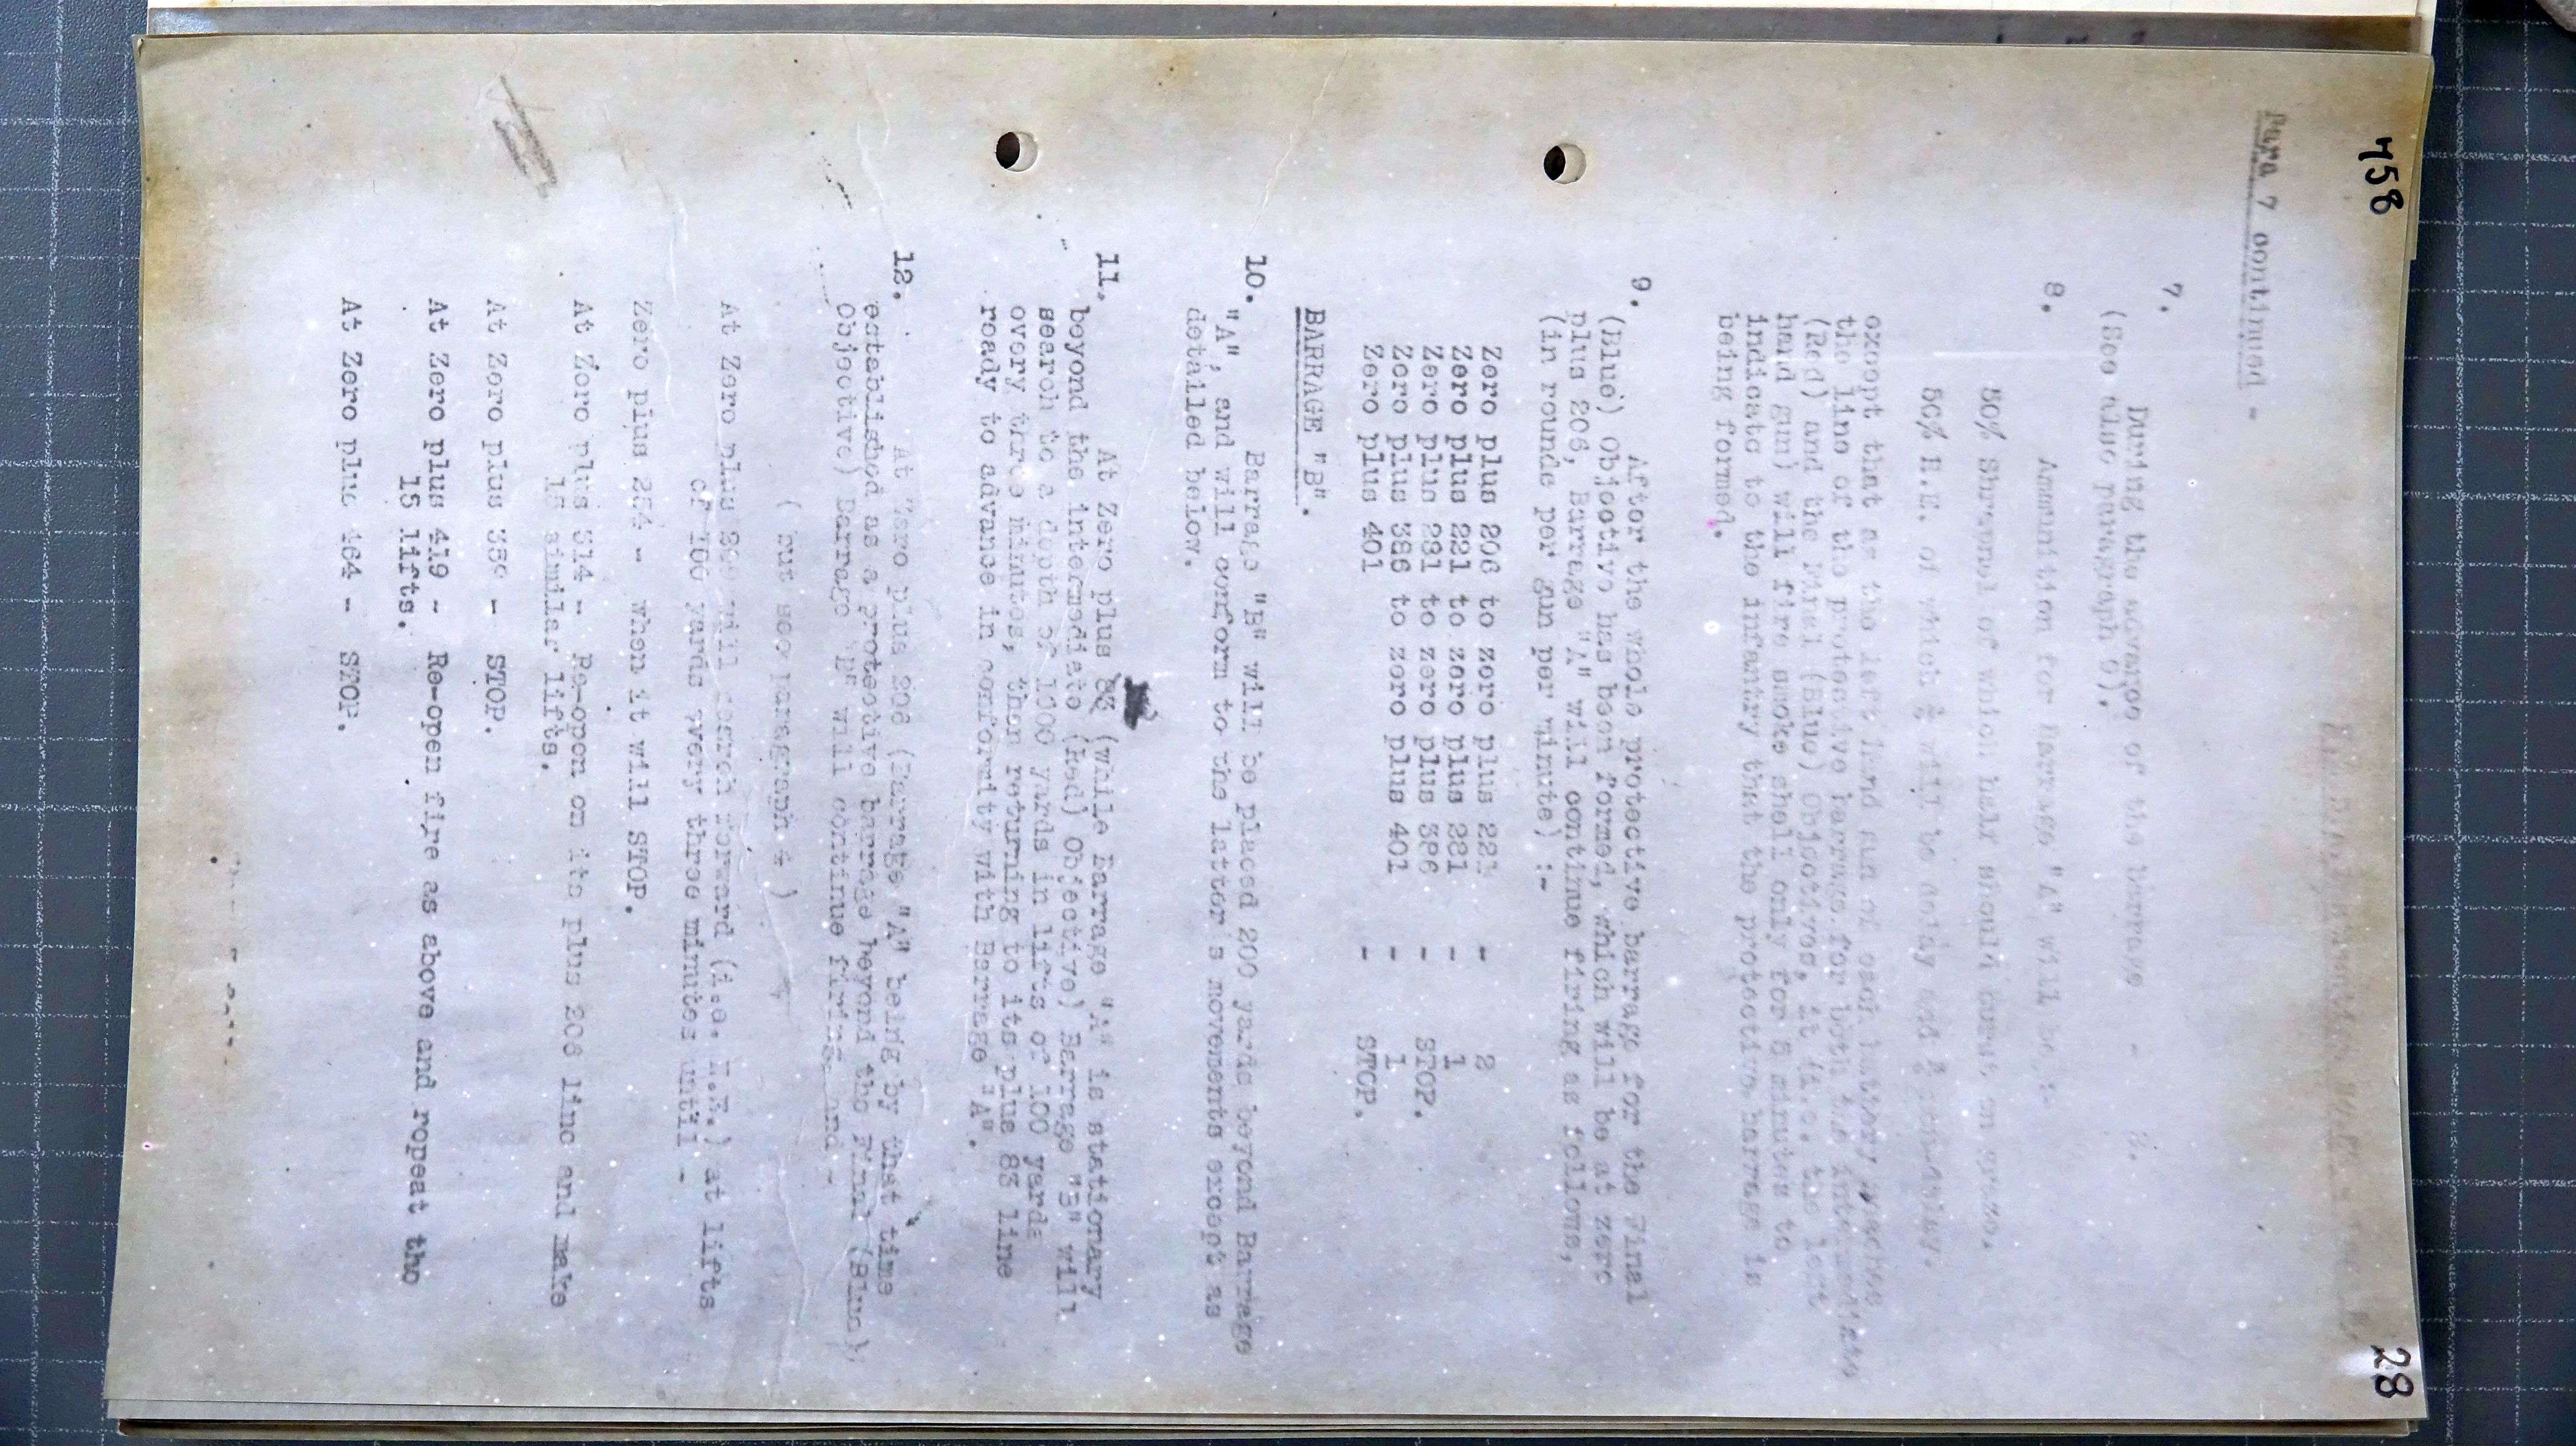 758
28
Para 7 continued -
7.
During the advance of the barrage - 2.
(See also paragraph 9).
8. Ammunition for Barrage "A" will be :-
50% Shrapnel of which half should burst on graze.
50% H.E. of which ½ will be delay and ½ non-delay.
except that as the left hand gun of each battery reaches
the line of the protective barrage for both the intermediate
(Red) and the Final (Blue) Objectives, it (i.e. the left
hand gun) will fire smoke shell only for 5 minutes to
indicate to the infantry that the protective barrage is
being formed.
9. After the whole protective barrage for the Final
(Blue) Objective has been formed, which will be at zero
plus 206, Barrage "A" will continue firing as follows,
(in rounds per gun per minute) :-
Zero plus 206 to zero plus 221 - 2
Zero plus 221 to zero plus 281 - 1
Zero plus 281 to zero plus 386 - STOP.
Zero plus 386 to zero plus 401 - 1
Zero plus 401 - STOP.
BARRAGE "B".
10. Barrage "B" will be placed 200 yards beyond Barrage
"A", and will conform to the latter's movements except as
detailed below.
11. At Zero plus 83 (while Barrage "A" is stationary
beyond the intermediate (Red) Objective) Barrage "B" will
search to a depth of 1000 yards in lifts of 100 yards
every three minutes, then returning to its plus 83 line
ready to advance in conformity with Barrage "A".
12. At Zero plus 206 (Barrage "A" being by that time
established as a protective barrage beyond the Final (Blue)
Objective) Barrage "B" will continue firing and -
( but see paragraph 4 )
At Zero plus will search forward (i.e. H.E.) at lifts
of 100 yards every three minutes until -
Zero plus 254 - when it will STOP.
At Zero plus 314 - Re-open on its plus 206 line and make
15 similar lifts.
At Zero plus 359 - STOP.
At Zero plus 419 - Re-open fire as above and repeat the
15 lifts.
At Zero plus 464 - STOP.